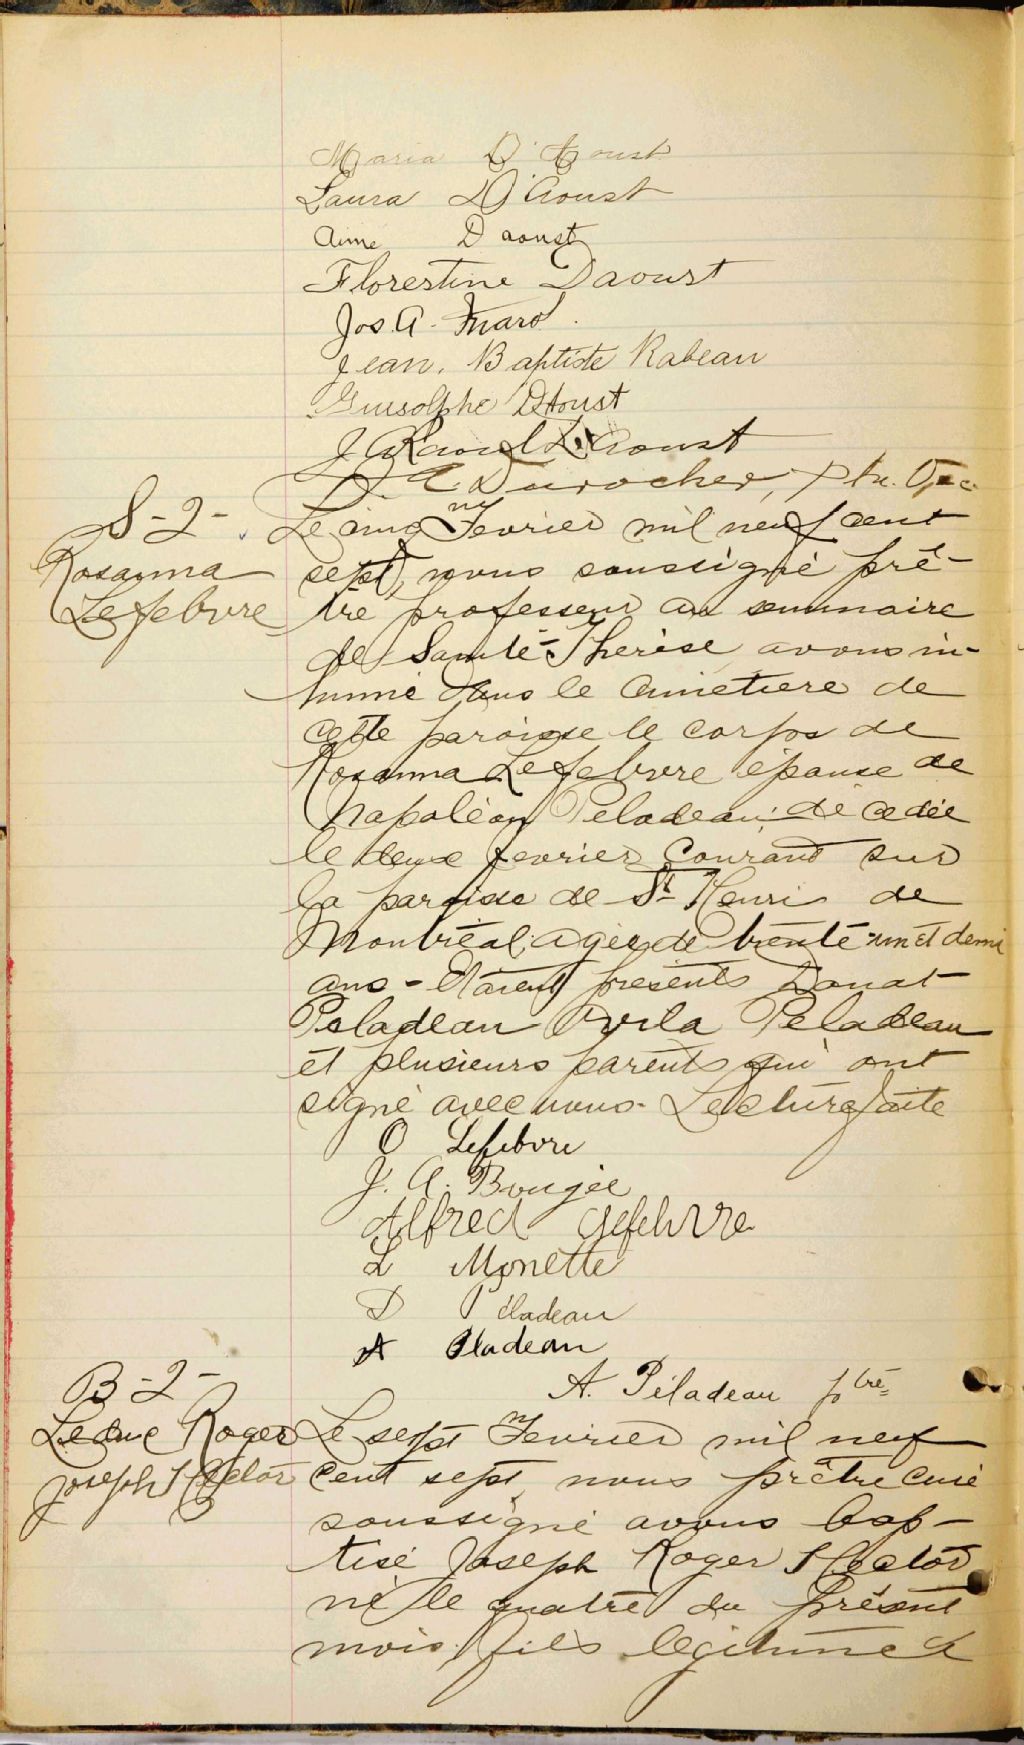 Maria D'Aoust
Laura D'Aoust
Aimé Daoust
Florestine Daoust
Jos. A.
Jean. Baptiste Rabeau
DAoust
J A Raoul D'Aoust
E. Durocher, Ptr.
S-2-
Rosanna
Lefebvre
Le cinq Fevrier mil neuf cent
sept, nous soussigné prê-
tre professeur au seminaire
de Sainte-Thérèse avons in-
humé dans le cimetiere de
cette paroisse le corps de
Rosanna Lefebvre épouse de
Napoléon Peladeau décedée
le deux fevrier courant sur
la paroisse de St Henri de
Montréal, agée de trente-un et demi
ans - Etaient presents Donat
Peladeau Peladeau
et plusieurs parents qui ont
signé avec nous. Lecture faite
O Lefebvre
J. A. Bougie
Alfred Lefebvre
L Monette
D Péladeau
A Pladeau
A. Péladeau ptre
B-2-
Leduc Roger
Joseph Hector
Le sept Fevrier mil neuf
cent sept, nous prêtre curé
soussigné avons bap-
tisé Joseph Roger Hector
né le quatre du présent
mois, fils légitime d